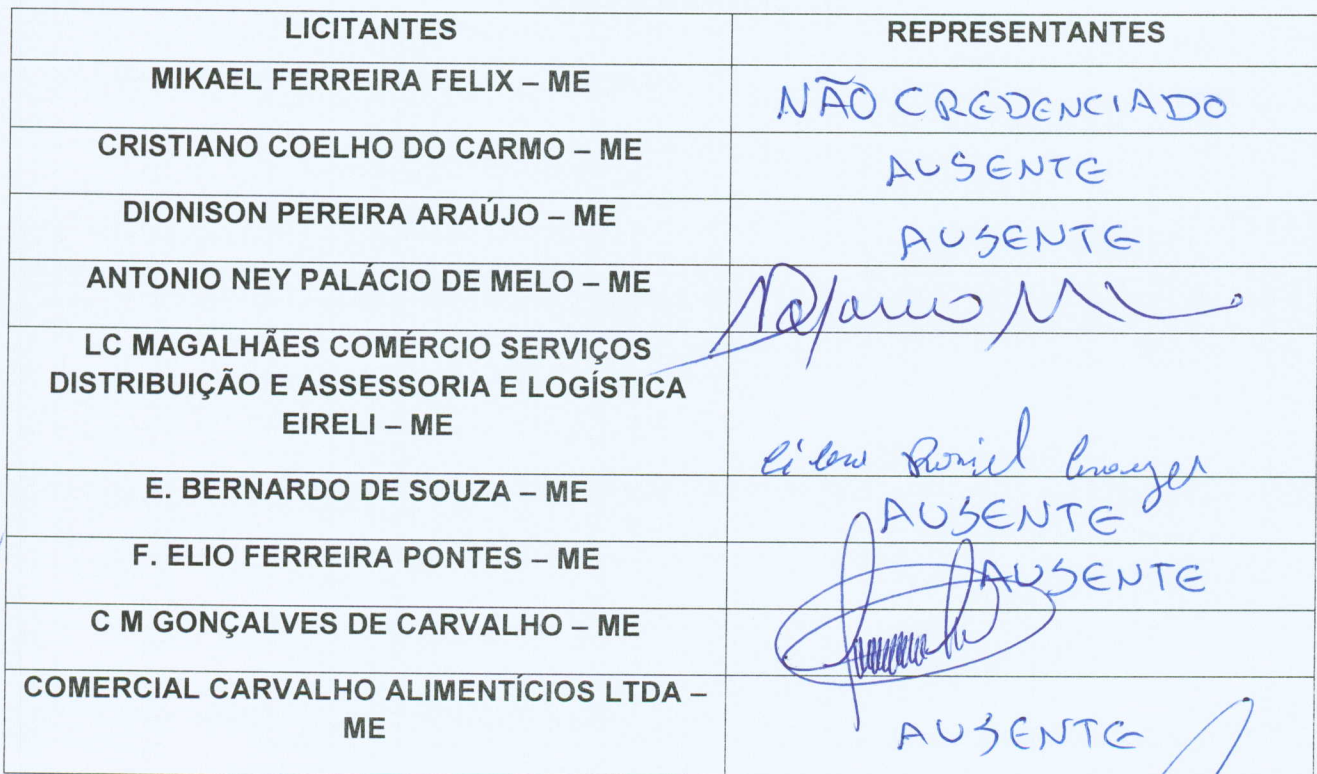 LICITANTES REPRESENTANTES
MIKAEL FERREIRA FELIX – ME NÃO CREDENCIADO
CRISTIANO COELHO DO CARMO – ME AUSENTE
DIONISON PEREIRA ARAÚJO – ME AUSENTE
ANTONIO NEY PALÁCIO DE MELO – ME
LC MAGALHÃES COMÉRCIO SERVIÇOS
DISTRIBUIÇÃO E ASSESSORIA E LOGÍSTICA
EIRELI – ME
E. BERNARDO DE SOUZA – ME AUSENTE
F. ELIO FERREIRA PONTES – ME AUSENTE
C M GONÇALVES DE CARVALHO – ME
COMERCIAL CARVALHO ALIMENTÍCIOS LTDA –
ME AUSENTE